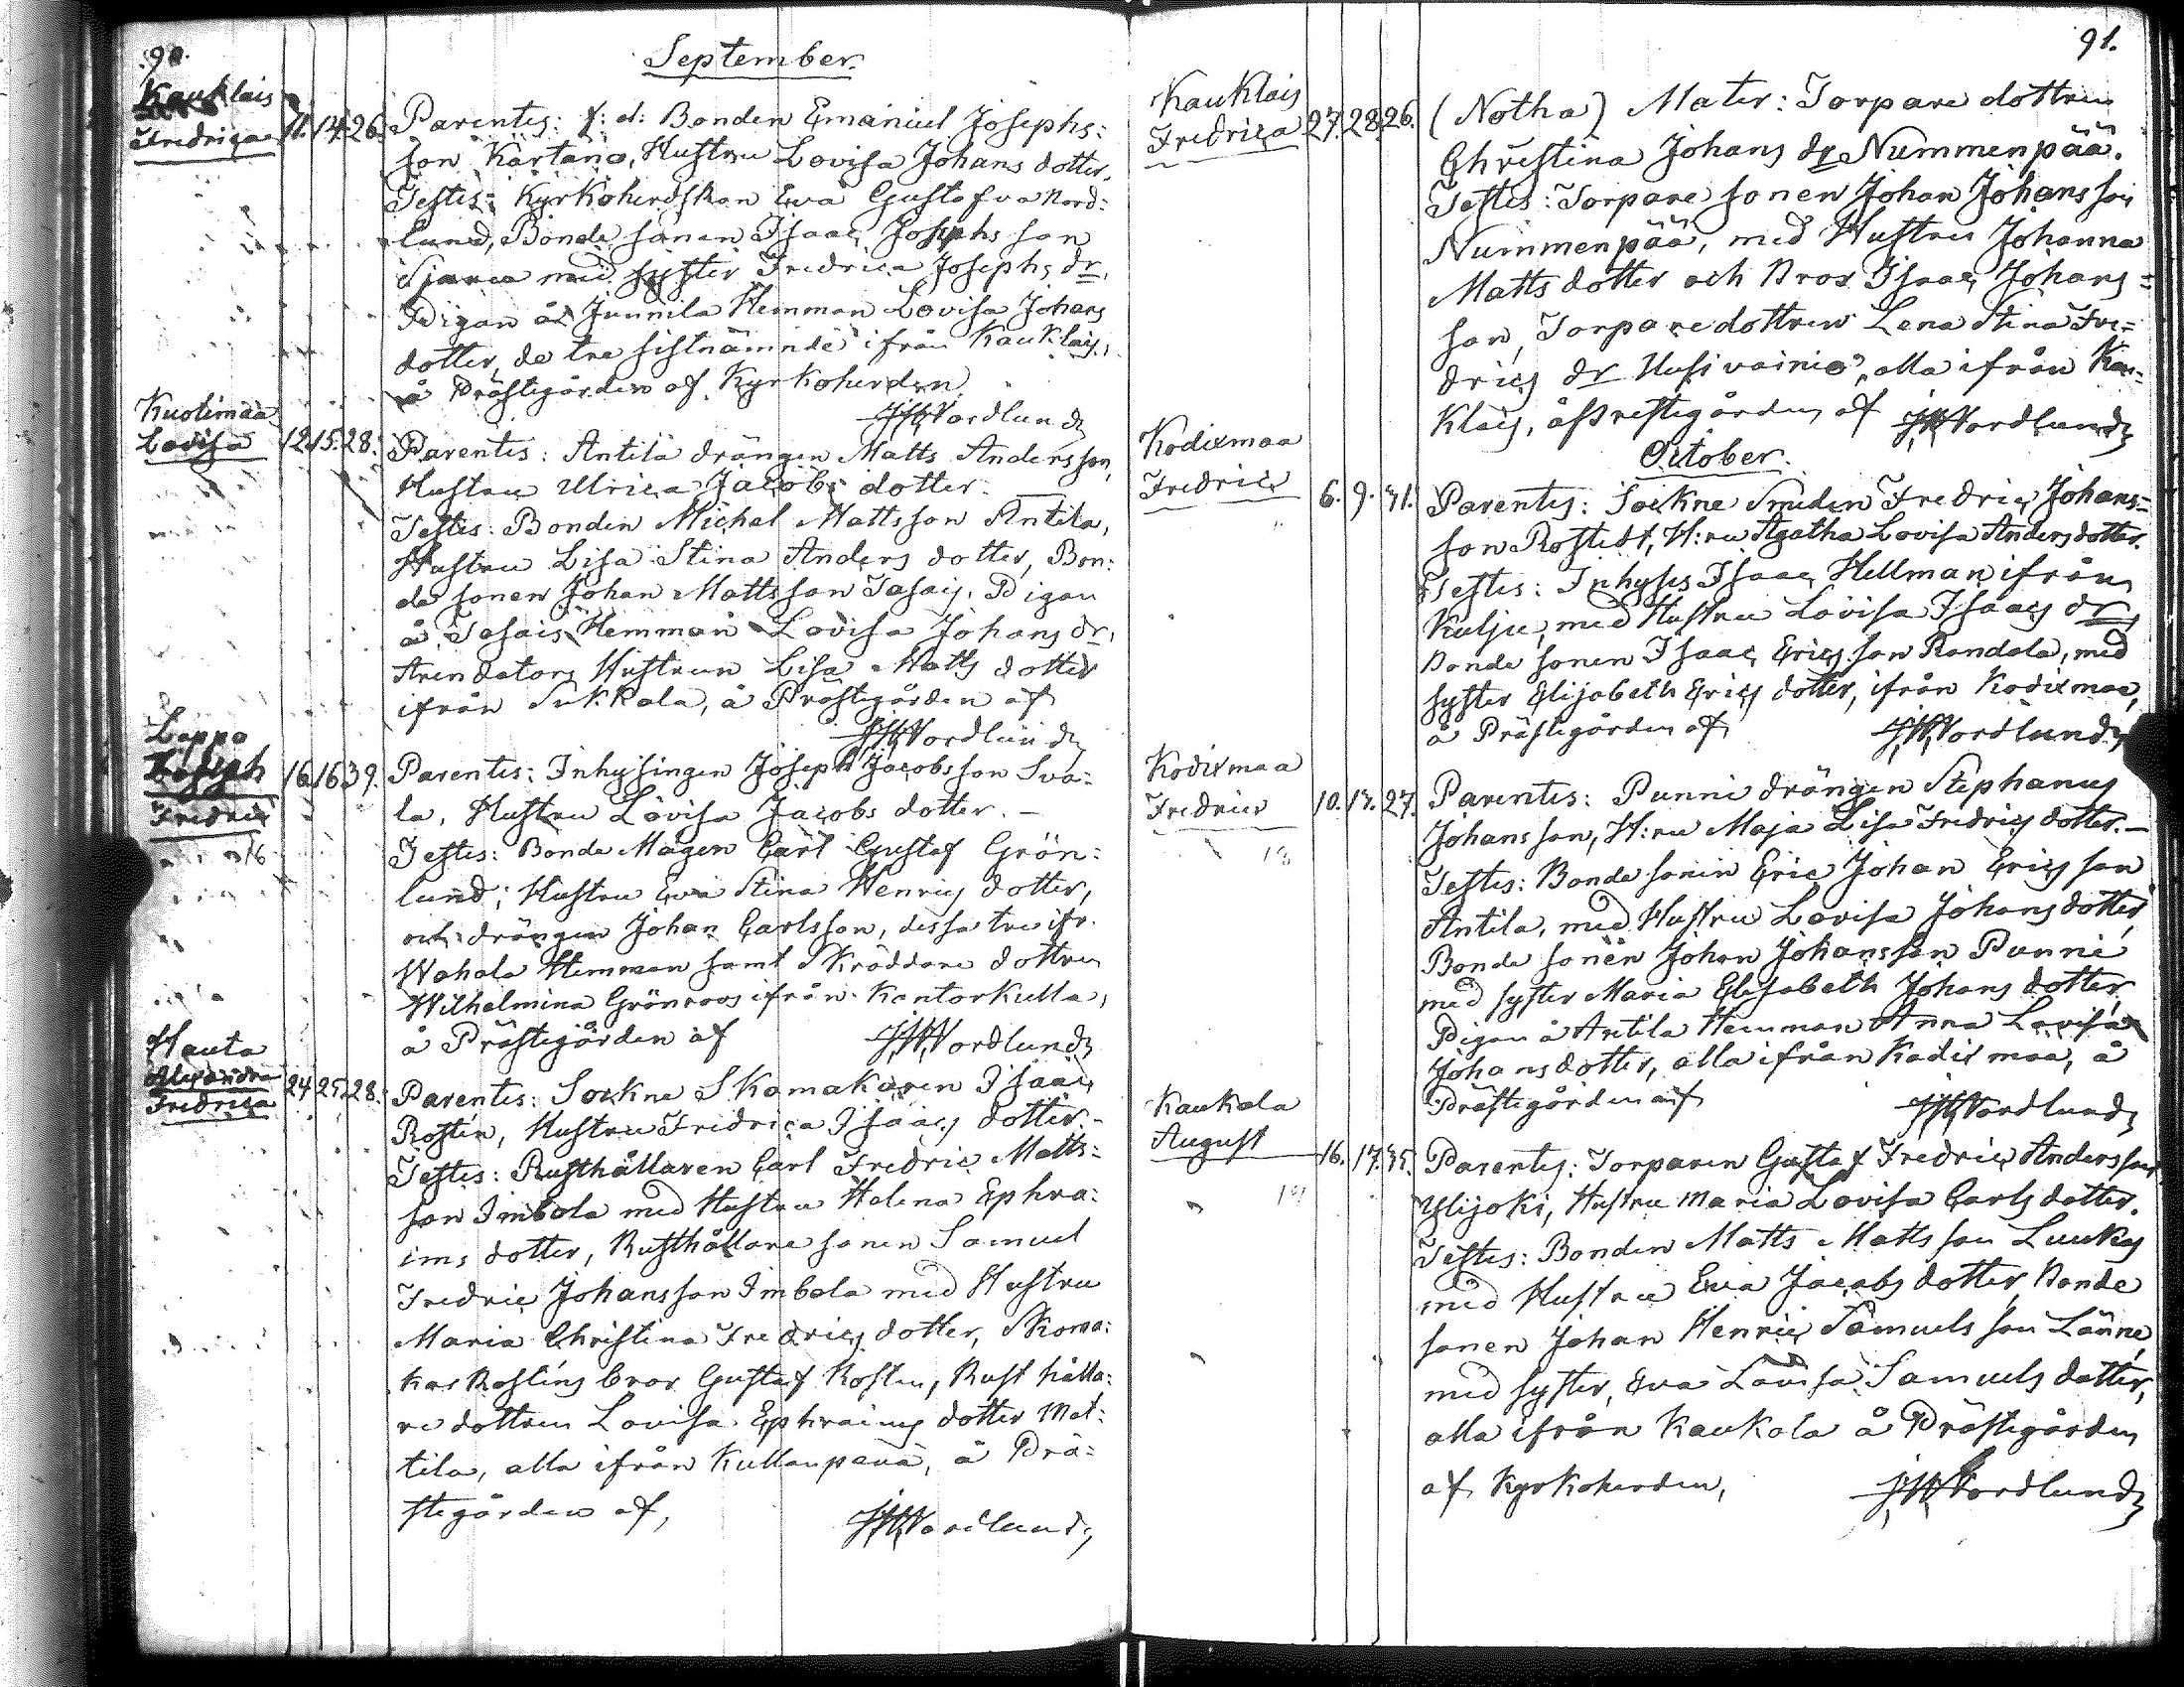 90.
September.
Kauklais
Fredrica 11. 14. 26.
Parentes: f: d: Bonden Emanuel Josephs:
son Kärtänä, Hustru Lovisa Johans dotter.
Testes: Kyrkoherdskan Eva Gustafva Nord:
lund, Bonde sonen Isaac Josephs son
med syster Fredrica Josephs dr,
Pigan å Junnila Hemman Lovisa Johans
dotter, de tre sistnämnde ifrån Kauklais,
å Prästegården af Kyrkoherden
Nordlund
Kuolimaa
Lovisa 12. 15. 28.
Parentes: Antila drängen Matts Andersson,
Hustru Ulrica Jacobs dotter.
Testes: Bonden Michel Mattsson Antila,
Hustru Lisa Stina Anders dotter, Bon:
de sonen Johan Mattsson Sasais, Pigan
å Sasais Hemman Lovisa Johans dr,
Arendators Hustrun Lisa Matts dotter
ifrån Sukkala, å Prästegården af
Nordlund
Leppo
Joseph
Fredric 16. 16. 39.
Parentes: Inhysingen Joseph Jacobsson Sva:
la, Hustru Lovisa Jacobs dotter. —
Testes: Bonde Mågen Carl Gustaf Grön:
lund, Hustru Eva Stina Henrics dotter,
och drängen Johan Carlsson, dessa tre ifr.
Wahala Hemman samt Skräddare dottren
Wilhelmina Grönroos ifrån Kantorkulla,
å Prästegården af Nordlund
Hauta
Alexandra
Fredrica 24. 25. 28.
Parentes: Sockne Skomakaren Isaac
Rosten, Hustru Fredrica Isaacs dotter. -
Testes: Rusthållaren Carl Fredric Matts:
son Imbola med Hustru Helena Ephra:
ims dotter, Rusthållare sonen Samuel
Fredric Johansson Imbola med Hustru
Maria Christina Fredrics dotter, Skoma:
kar Rostens bror Gustaf Rosten, Rust hålla:
re dottren Lovisa Ephraims dotter Mat:
tila, alla ifrån Kullanpää, å Prä:
stegården af,
Nordlund
91.
Kauklais
Fredrica 27. 28. 26.
(Notha) Mater: Torpare dottren
Christina Johans dr Nummenpää.
Testes: Torpare sonen Johan Johansson
Nummenpää, med Hustru Johanna
Matts dotter och Bror Isaac Johans=
son, Torpare dottren Lena Stina Fre=
drics dr Husivainio, alla ifrån Kau=
klais, å Prestegården af Nordlund
October.
Kodixmaa
Fredric 6. 9. 31.
Parentes: Sockne Smeden Fredric Johans=
son Rostedt, H:ru Agatha Lovisa Anders dotter.
Testes: Inhyses Isaac Hellman ifrån
Kulju, med Hustru Lovisa Isaacs dr,
Bonde sonen Isaac Erics son Randala, med
syster Elisabeth Erics dotter, ifrån Kodixmaa,
å Prästegården af Nordlund
Kodixmaa
Fredric 10. 17. 27.
Parentes: Punni drängen Stephanus
Johansson, H:ru Maja Lisa Fredrics dotter. —
Testes: Bonde sonen Eric Johan Erics son
Antila, med Hustru Lovisa Johans dotter,
Bonde sonen Johan Johansson Punni
med syster Maria Elisabeth Johans dotter,
Pigan å Antila Hemman Anna Lovisa
Johans dotter, alla ifrån Kodixmaa, å
Prästegården af Nordlund
Kaukola
August 16. 17. 35.
Parentes: Torparen Gustaf Fredric Andersson
Ylijoki, Hustru Maria Lovisa Carls dotter.
Testes: Bonden Matts Mattsson Luukas
med Hustru Eva Jacobs dotter, Bonde
sonen Johan Henric Samuels son Länne,
med syster, Eva Lovisa Samuels dotter,
alla ifrån Kaukola å Prästegården
af Kyrkoherden, Nordlund